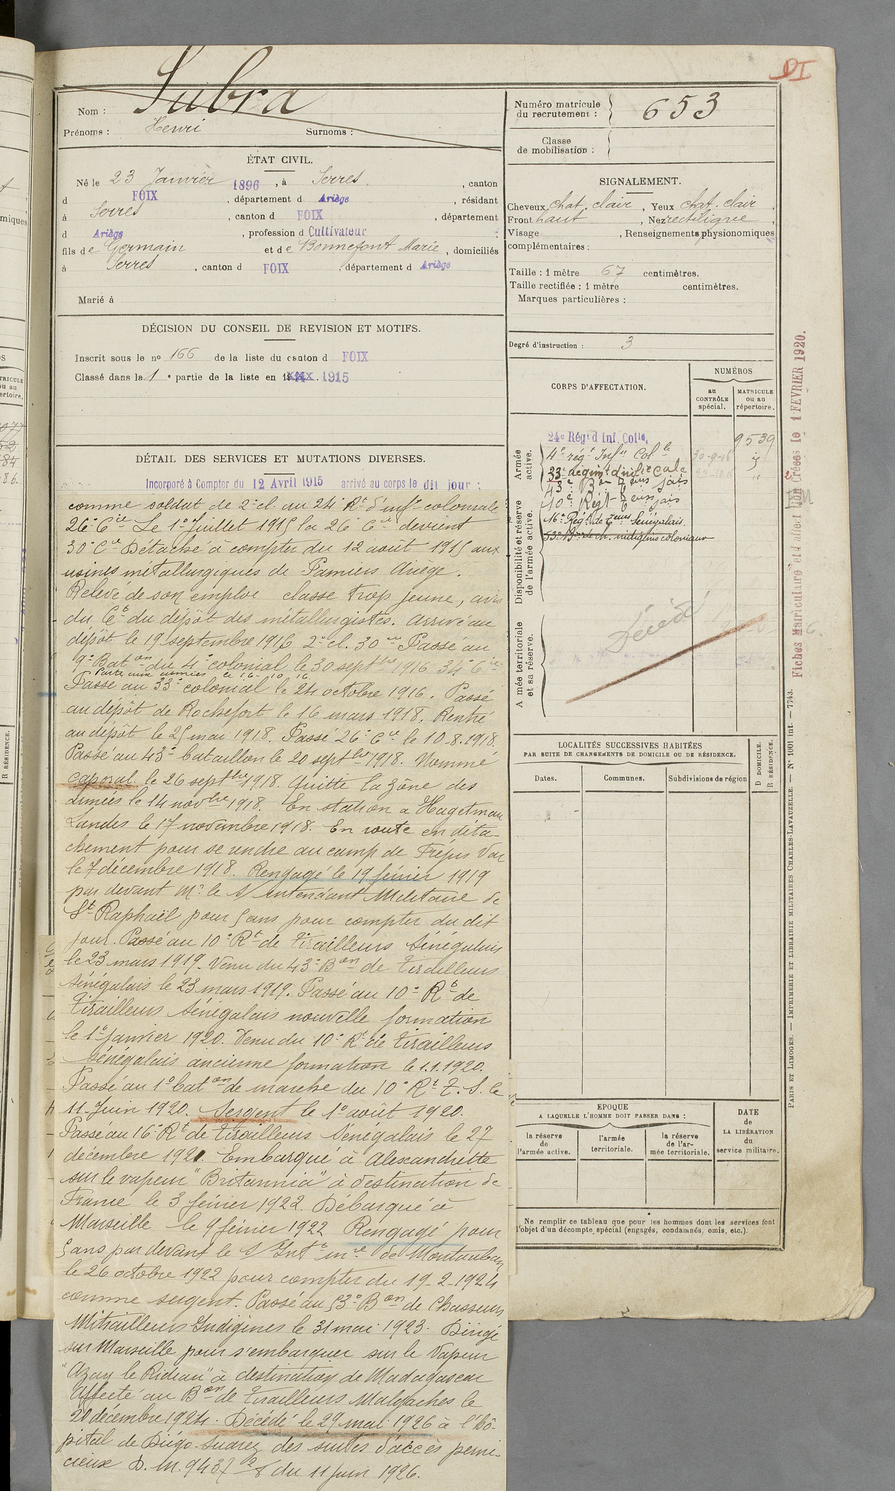 Nom : Subra
Prénoms : Henri Surnoms :
ÉTAT CIVIL.
Né le 23 Janvier 1896, à Serres, canton
d FOIX, département d Ariège, résidant
à Serres, canton d FOIX, département
d Ariège, profession d Cultivateur
fils de Germain et de Bonnefont Marie, domiciliés
à Serres, canton d FOIX, département d Ariège
Marié à
DÉCISION DU CONSEIL DE REVISION ET MOTIFS.
Inscrit sous le nº 166 de la liste du canton d FOIX
Classé dans la 1e partie de la liste en 1915
DÉTAIL DES SERVICES ET MUTATIONS DIVERSES.
Incorporé à Compter du 12 Avril 1915 arrivé au corps le dit jour :
comme soldat de 2e cl. au 24e Rt d'infie coloniale
26e Cie Le 1er Juillet 1915 la 26e Cie devient
30e Cie Détaché à compter du 12 août 1915 aux
usines métallurgiques de Pamiers Ariège.
Relevé de son emploi classe trop jeune, avis
du Ct du dépôt des métallurgistes. Arrivé au
dépôt le 19 septembre 1916 2e cl. 30e Cie Passé au
9e Baton du 4e colonial le 30 septbre 1916 34e Cie
Parti aux armées le 16-10-16
Passé au 33e colonial le 24 octobre 1916. Passé
au dépôt de Rochefort le 16 mars 1918. Rentré
au dépôt le 25 mai 1918. Passé 26e Cie le 10.8.1918
Passé au 43e bataillon le 20 septbre 1918. Nommé
caporal le 26 septbre 1918. Quitte la zône des
armées le 14 novbre 1918. En station à Hagetmau
Landes le 17 novembre 1918. En route en déta-
chement pour se rendre au camp de Fréjus Var
le 7 décembre 1918. Rengagé le 19 février 1919
par devant Mr le S/Intendant Militaire de
St Raphaël pour 5 ans pour compter du dit
jour. Passé au 10e Rt de Tirailleurs Sénégalais
le 23 mars 1919. Venu du 43e Bon de Tirailleurs
Sénégalais le 23 mars 1919. Passé au 10e Rt de
Tirailleurs Sénégalais nouvelle formation
le 1er Janvier 1920. Venu du 10e Rt de Tirailleurs
Sénégalais ancienne formation le 1.1.1920.
Passé au 1er baton de marche du 10e Rt T. S. le
11 Juin 1920. Sergent le 1er août 1920.
Passé au 16e Rt de Tirailleurs Sénégalais le 27
décembre 1921. Embarqué à Alexandrette
sur le vapeur "Britannia" à destination de
France le 3 février 1922. Débarqué à
Marseille le 9 février 1922 Rengagé pour
5 ans par devant le S/Intt mre de Montauban
le 26 octobre 1922 pour compter du 19.2.1924
comme sergent. Passé au 53e Bon de Chasseurs
Mitrailleurs Indigènes le 31 mai 1923. Dirigé
sur Marseille pour s'embarquer sur le Vapeur
"Azay le Rideau" à destination de Madagascar
Affecté au Bon de Tirailleurs Malgaches le
20 décembre 1924. Décédé le 29 mai 1926 à l'Hô-
pital de Diégo-Suarez des suites d'accès perni-
cieux D. M. 9437 du 11 juin 1926.
Numéro matricule du recrutement : 653
Classe de mobilisation :
SIGNALEMENT.
Cheveux chat. clair, Yeux chat. clair
Front haut, Nez rectiligne,
Visage , Renseignements physionomiques
complémentaires :
Taille : 1 mètre 67 centimètres.
Taille rectifiée : 1 mètre centimètres.
Marques particulières :
Degré d'instruction : 3
CORPS D'AFFECTATION.
NUMÉROS
AU CONTRÔLE spécial.
MATRICULE OU AU répertoire.
Armée active.
24e Régt d'Inf. Colle, 9539
4e régt Infie Colle
33e régimt d'infie cale
43e Bon Teurs Sgais
10e Régt Teurs Sgais
Disponibilité et réserve de l'armée active.
16e Régt de Teurs Sénégalais
53e Bon de ch. indigènes coloniaux
Armée territoriale et sa réserve.
Décédé
LOCALITÉS SUCCESSIVES HABITÉES
PAR SUITE DE CHANGEMENTS DE DOMICILE OU DE RÉSIDENCE.
Dates.
Communes.
Subdivisions de région
D DOMICILE.
R RÉSIDENCE.
EPOQUE
A LAQUELLE L'HOMME DOIT PASSER DANS :
la réserve de l'armée active.
l'armée territoriale.
la réserve de l'armée territoriale.
DATE de LA LIBÉRATION du service militaire.
Ne remplir ce tableau que pour les hommes dont les services font
l'objet d'un décompte spécial (engagés, condamnés, omis, etc.).
PARIS ET LIMOGES. — IMPRIMERIE ET LIBRAIRIE MILITAIRES CHARLES-LAVAUZELLE. — Nº 1001 int. — 7743.